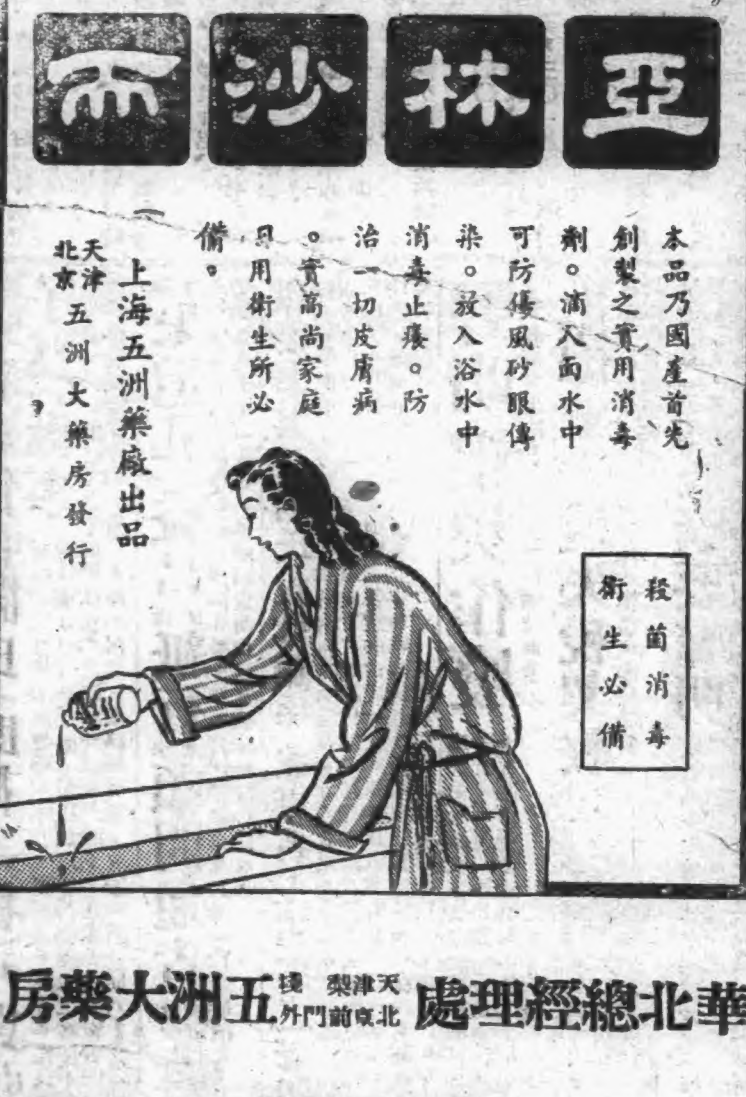 亞林沙而
本品乃國產首先
創製之實用消毒
劑。滴入面水中
可防傷風砂眼傳
染。放入浴水中
消毒止癢。防
治一切皮膚病
。實高尚家庭
日用衛生所必
備。
殺菌消毒
衛生必備
上海五洲藥廠出品
天津北京五洲大藥房發行
華北總經理處 天津梨棧 北京前門外 五洲大藥房